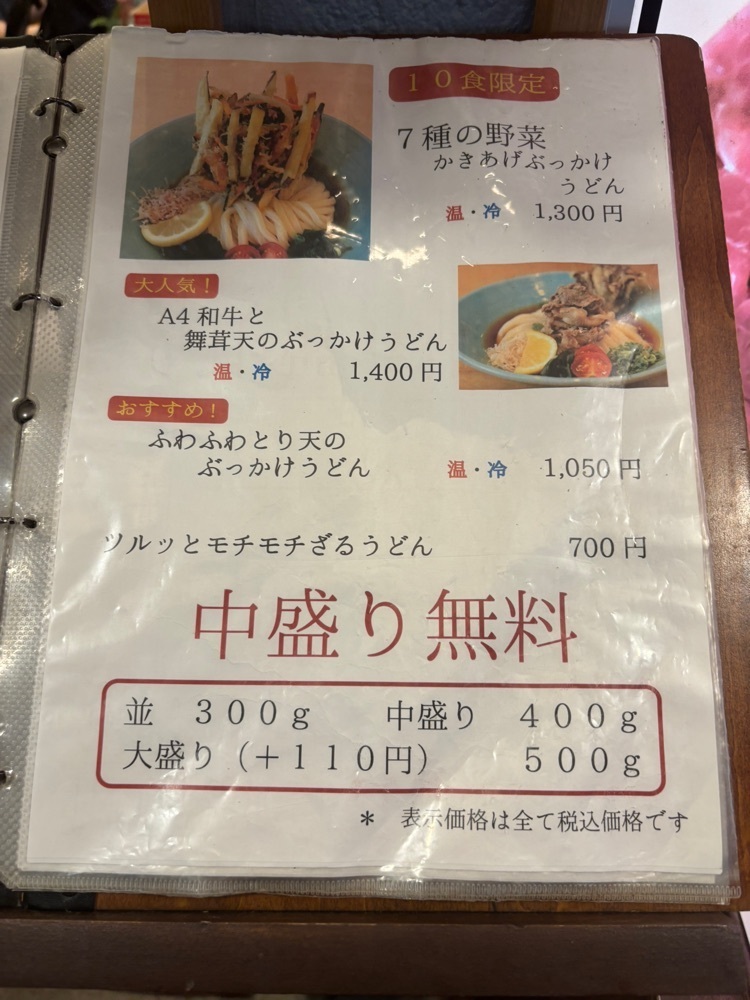 １０食限定
７種の野菜
かきあげぶっかけ
うどん
温・冷 1,300円
大人気！
A4 和牛と
舞茸天のぶっかけうどん
温・冷 1,400円
おすすめ！
ふわふわとり天の
ぶっかけうどん
温・冷 1,050円
ツルッとモチモチざるうどん 700円
中盛り無料
並 ３００ｇ 中盛り ４００ｇ
大盛り（＋１１０円） ５００ｇ
＊ 表示価格は全て税込価格です